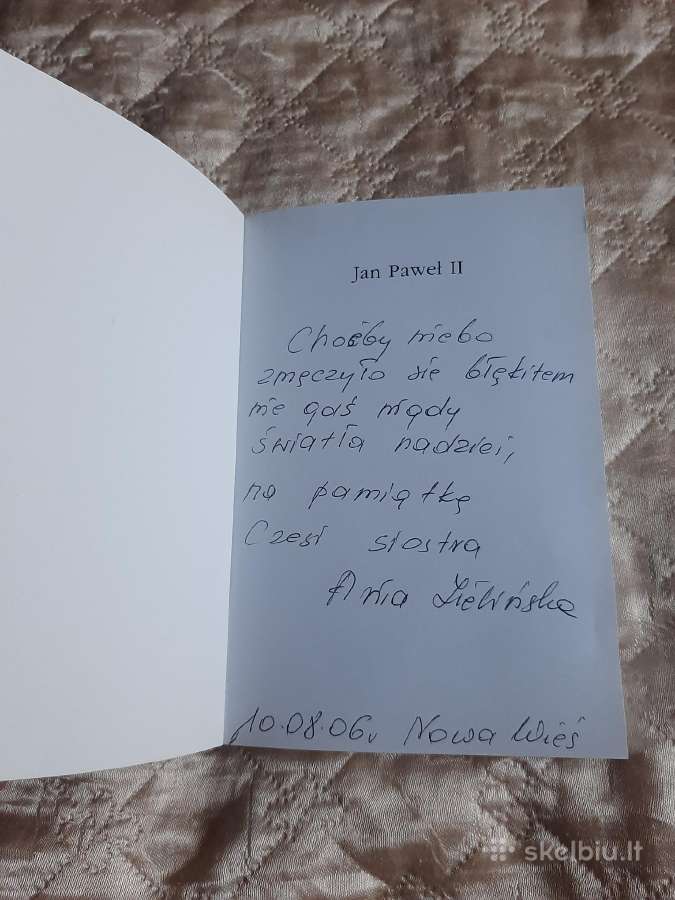 Jan Paweł II
Choćby niebo
zmęczyło się błękitem
nie gaś nigdy
światła nadziei,
na pamiątkę
Czesi siostra
Ania Zielińska
10.08.06r Nowa Wieś
skelbiu.lt